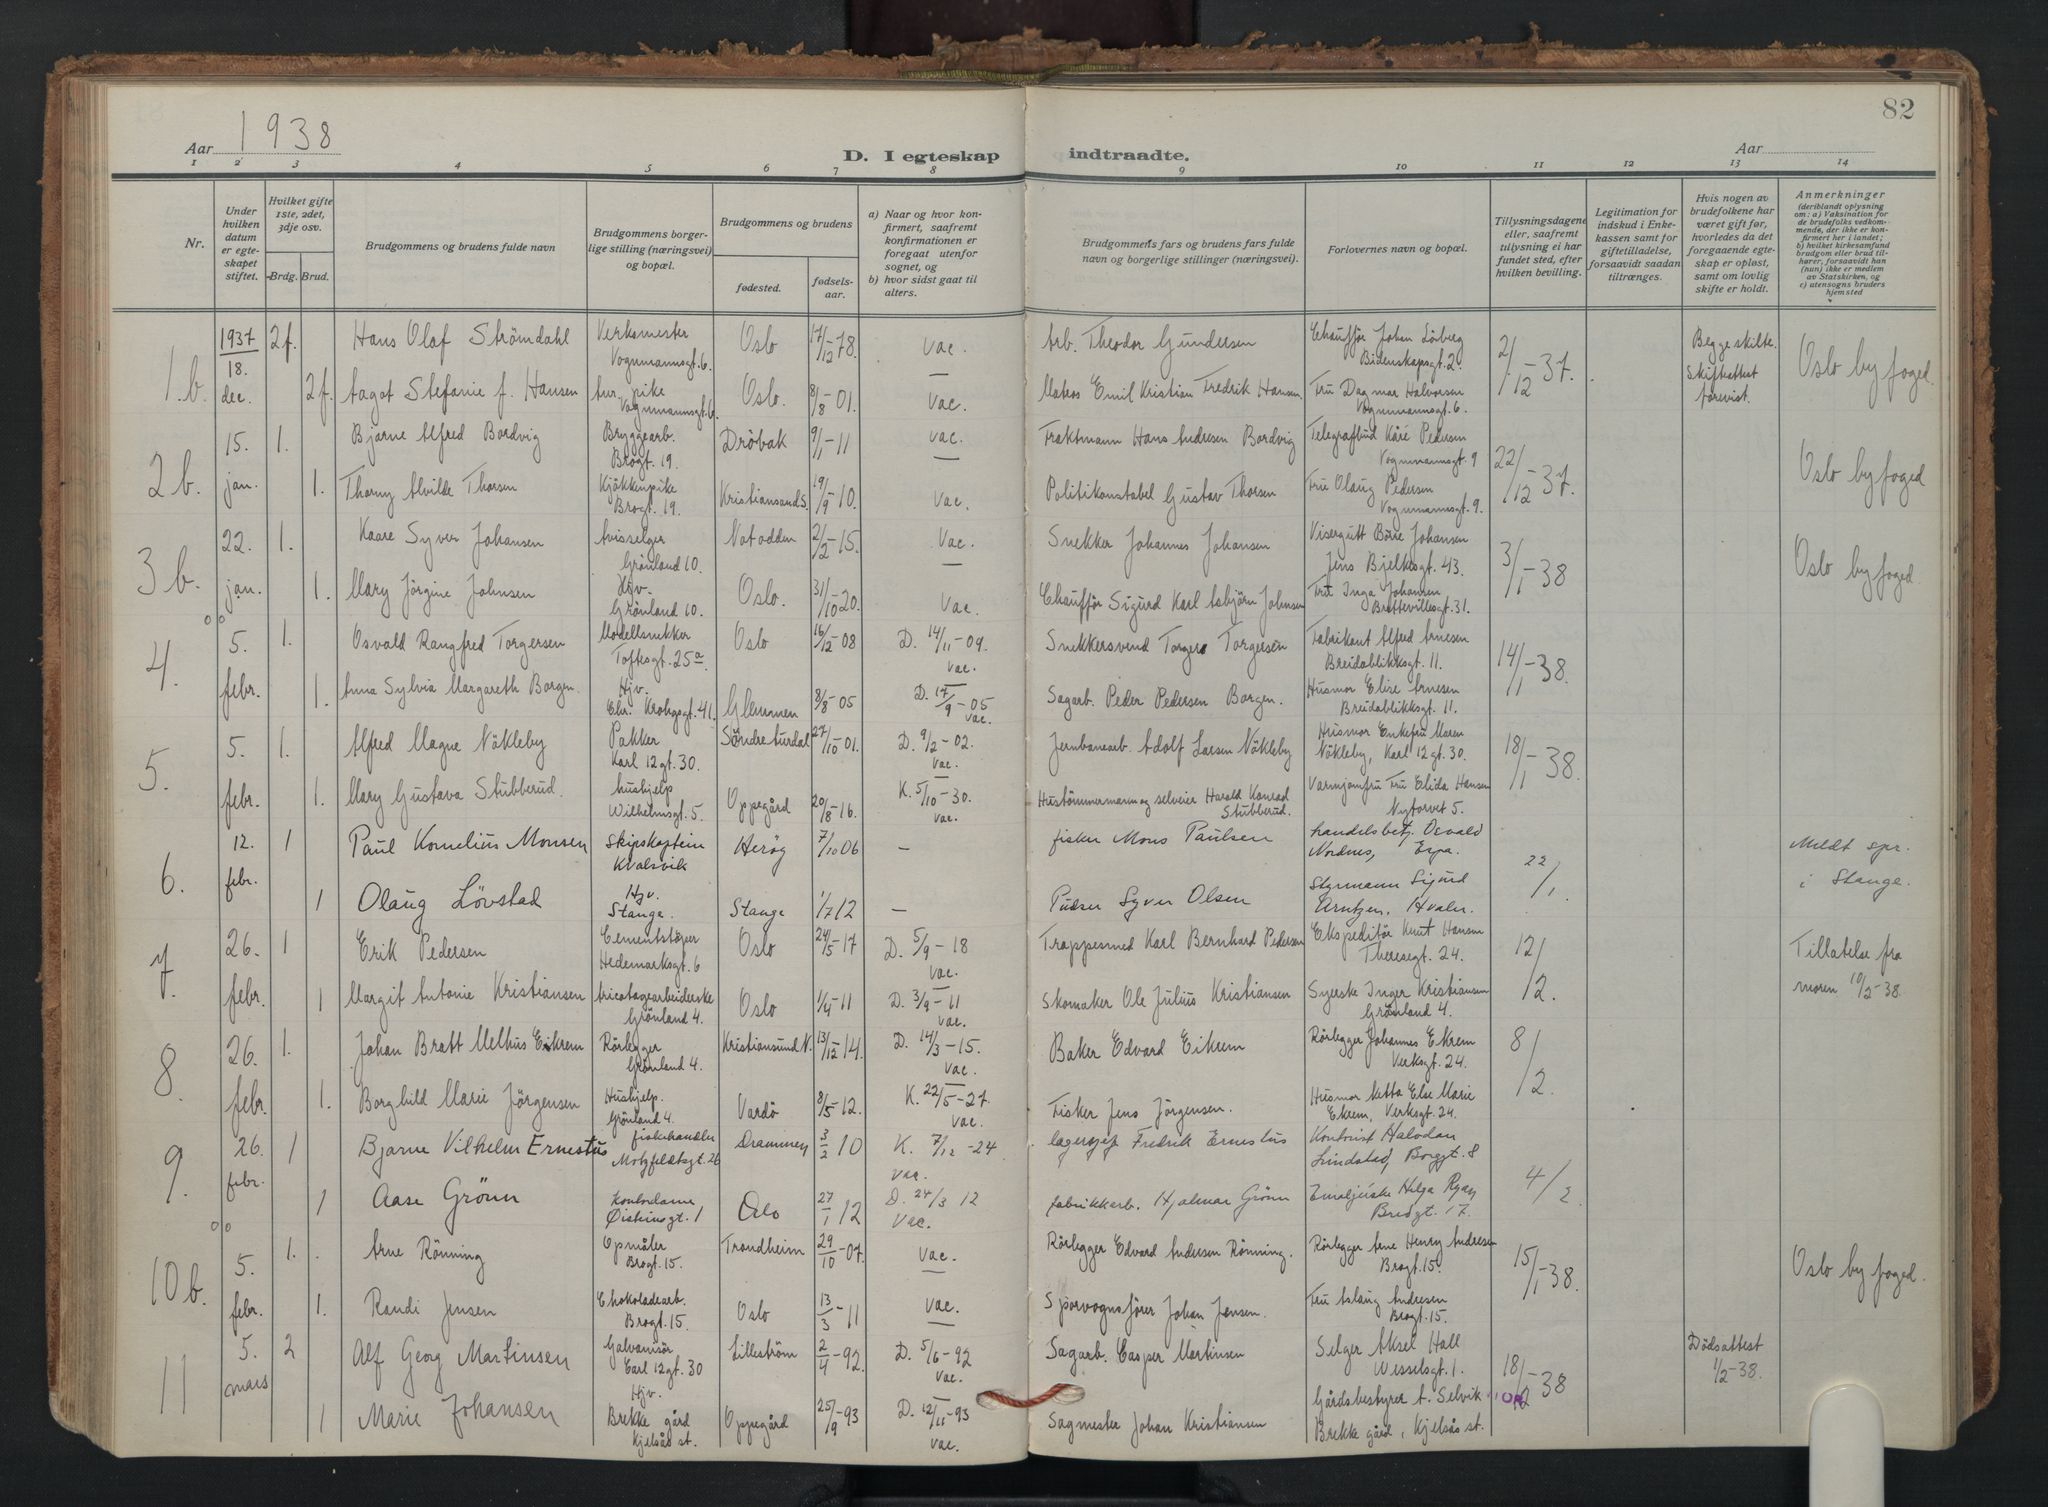 82
Aar 1938
D. I egteskap indtraadte.
Aar
1 2 3 4 5 6 7 8 9 10 11 12 13 14
Nr.
Under hvilken datum er egteskapet stiftet.
Hvilket gifte 1ste, 2det, 3dje osv.
Brdg. Brud.
Brudgommens og brudens fulde navn
Brudgommens borgerlige stilling (næringsvei) og bopæl.
Brudgommens og brudens
fødested.
fødselsaar.
a) Naar og hvor konfirmert, saafremt konfirmationen er foregaat utenfor sognet, og
b) hvor sidst gaat til alters.
Brudgommens fars og brudens fars fulde navn og borgerlige stillinger (næringsvei).
Forlovernes navn og bopæl.
Tillysningsdagene eller, saafremt tillysning ei har fundet sted, efter hvilken bevilling.
Legitimation for indskud i Enkekassen samt for giftetilladelse, forsaavidt saadan tiltrænges.
Hvis nogen av brudefolkene har været gift før, hvorledes da det foregaaende egteskap er opløst, samt om lovlig skifte er holdt.
Anmerkninger
(deriblandt oplysning om: a) Vaksination for de brudefolks vedkommende, der ikke er konfirmert her i landet; b) hvilket kirkesamfund brudgom eller brud tilhører, forsaavidt han (hun) ikke er medlem av Statskirken, og c) utensogns bruders hjemsted
1.b. 1937 18. dec. 2f. Hans Olaf Strömdahl Verksmester Vognmannsgt. 6. Oslo 17/12-78. vac. Arb. Theodor Gundersen Chaufför Johan Lörberg Bidenkapsgt. 2. 2/12-37. Begge skilte. Skifteattest forevist. Oslo byfoged.
2f. Aagot Stefanie f. Hansen Vognmannsgt. 6 Oslo. 8/8-01. Vac. Matros Emil Kristian Fredrik Hansen. Fru Dagmar Halvorsen Vognmannsgt. 6.
2b. 15. jan. 1. Bjarne Alfred Bordvig Bryggearb. Brogt. 19. Dröbak 9/1-11 vac. Fraktmann Hans Andresen Bordvig Telegrafbud Kåre Pedersen Vognmannsgt. 9 22/12-37. Oslo byfoged
1. Thorny Alvilde Thorsen Kjökkenpike Brogt. 19. Kristiansand S. 19/9-10. Vac. Politikonstabel Gustav Thorsen Fru Olaug Pedersen Vognmannsgt. 9.
3b. 22. jan. 1. Kaare Syver Johansen Avisselger Grönland 10. Notodden 2/2-15. Vac. Snekker Johannes Johansen Visergutt Börre Johansen Jens Bjelkesgt. 43. 3/1-38 Oslo byfoged.
1. Mary Jörgine Johnsen Hjv. Grönland 10. Oslo. 31/10-20. Vac. Chaufför Sigurd Karl Asbjörn Johnsen Fru Inga Johansen Brettevillesgt. 31.
4. 5. febr. 1. Osvald Rangfred Torgersen Modellsnekker Toftesgt. 25a. Oslo 16/12-08 D. 14/11-09. vac. Snekkersvend Torger Torgersen Fabrikant Alfred Arnesen Breidablikksgt. 11. 14/1-38.
1. Anna Sylvia Margareth Borgen. Hjv. Chr. Krohgsgt. 41. Glemmen 8/8-05 D. 17/9-05 vac. Sagarb. Peder Pedersen Borgen. Husmor Elise Arnesen Breidablikksgt. 11.
5. 5. febr. 1. Alfred Magne Nökleby Pakker Karl 12gt. 30. Söndre Aurdal 27/10-01. D. 9/2-02. vac. Jernbanearb. Adolf Larsen Nökleby Husmor Enkefru Maren Nökleby, Karl 12gt. 30. 18/1-38.
1. Mary Gustava Stubberud. hushjelp Wilhelmsgt. 5 Oppegård 20/8-16. K. 5/10-30. vac. Hustömmermann og selveier Harald Konrad Stubberud. Fru Elida Hansen Nytorvet 5.
6. 12. febr. 1 Paul Kornelius Monsen Skipskaptein Kvalsvik Herøy 7/10 06 — fisker Mons Paulsen handelsbetj. Osvald Nordnes, Espa. 22/1. Meldt spr. i Stange.
1 Olaug Lövstad Hjv. Stange. Stange 1/7 12 — Syver Olsen Styrmann Sigurd Arntzen, Hvaler.
7. 26. febr. 1 Erik Pedersen Cementstöper Hedemarksgt. 6 Oslo 24/5-17 D. 5/9-18 vac. Trappesmed Karl Bernhard Pedersen Ekspeditör Knut Hansen Theresegt. 24. 12/2. Tillatelse fra moren 10/2-38.
1 Margit Antonie Kristiansen tricotagearbeiderske Grönland 4. Oslo 1/4-11 D. 3/9-11 vac. Skomaker Ole Julius Kristiansen Syerske Inger Kristiansen Grönland 4.
8. 26. febr. 1. Johan Bratt Melhus Eikrem Rörlegger Grönland 4. Kristiansund N. 13/12-14. D. 14/3-15. vac. Baker Edvard Eikrem Rörlegger Johannes Ekrem Verksgt. 24. 8/2
1. Borghild Marie Jörgensen Hushjelp. Grönland 4. Vardö 8/5-12. K. 22/5-27. vac. Fisker Jens Jörgensen. Husmor Netta Else Marie Ekrem, Verksgt. 24.
9. 26. febr. 1 Bjarne Vilhelm Ernestus fiskehandler Motzfeldtsgt. 26 Drammen 3/2 10 K. 7/12-24 vac. lagersjef Fredrik Ernestus Kontorist Halvdan Lindstad, Borggt. 8 4/2.
1 Aase Grönn Kontordame Øistensgt. 1 Oslo 27/1 12 D. 24/3 12 vac. fabrikkarb. Hjalmar Grönn Emaljérske Helga Ryan Bredgt. 17.
10b. 5. febr. 1. Arne Rönning Opmåler Brogt. 15. Trondheim 29/10-07. vac. Rörlegger Edvard Andersen Rönning. Rörlegger Arne Henry Andresen Brogt. 15. 15/1-38. Oslo byfoged.
1. Randi Jensen Chokoladearb. Brogt. 15. Oslo 13/3-11 vac. Sporvognsfører Johan Jensen. Fru Aslaug Andresen Brogt. 15.
11 5. mars 2 Alf Georg Martinsen Galvanisör Carl 12gt. 30 Lilleström 2/4-92. D. 5/6-92 vac. Sagarb. Casper Martinsen Selger Aksel Hall Wesselsgt. 1. 18/2-38 Dödsattest 1/2-38.
1 Marie Johansen Hjv. Brekke gård Kjelsås st. Oppegård 25/9-93 D. 12/11-93 vac. Sagmester Johan Kristiansen Gårdsbestyrer A. Selvik Brekke gård, Kjelsås st.